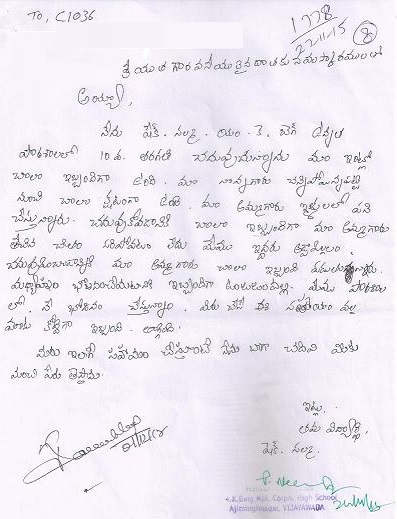 TO, C1036
1778
22-11-15
8
శ్రీ యుత గౌరవనీయులైన దాతకు నమస్కారములు
అయ్యా,
నేను షేక్. సల్మా. యం. కె. బేగ్ ఉన్నత
పాఠశాలలో 10 వ. తరగతి చదువుచున్నాను మా ఇంట్లో
చాలా ఇబ్బందిగా ఉంది. మా నాన్నగారు చనిపోయినప్పటి
నుంచి చాలా కష్టంగా ఉంది. మా అమ్మగారు ఇళ్ళలలో పని
చేస్తున్నారు. చదువుకోవడానికి చాలా ఇబ్బందిగా మా అమ్మగారు
తెచ్చిన జీతం సరిపోవటం లేదు మేము ఇద్దరు ఆడపిల్లలం.
చదువుకుంటున్నాము మా అమ్మగారు చాలా ఇబ్బంది
మధ్యాహ్నం భోజనంచేయటానికి ఇబ్బందిగా ఉంటుంది. మేము పాఠశాల
లో నే భోజనం చేస్తున్నాం. మీరు చేసే ఈ సహాయం వల్ల
మాకు కొద్దిగా ఇబ్బంది తగ్గింది.
మీరు ఇలాగే సహాయం చేస్తూంటే నేను బాగా చదివి మీకు
మంచి పేరు తెస్తాను.
ఇట్లు,
తమ విద్యార్థి,
షేక్. సల్మా.
A.K.Baig Mpl. Corpn. High School
Ajitsinghnagar, VIJAYAWADA